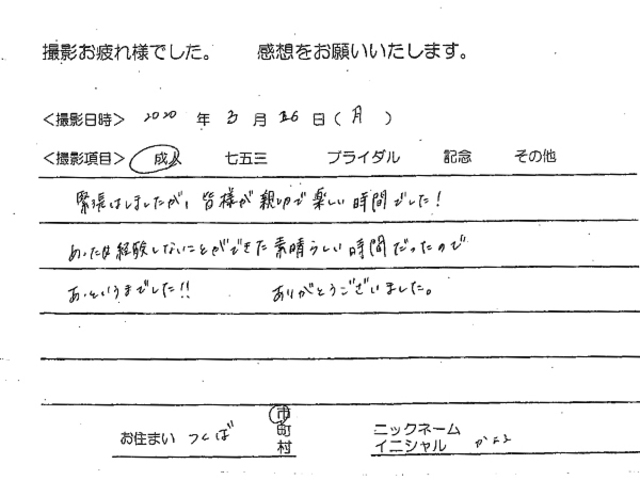 撮影お疲れ様でした。 感想をお願いいたします。
<撮影日時> 2020 年 3 月 16 日 ( 月 )
<撮影項目> 成人 七五三 ブライダル 記念 その他
緊張はしましたが、皆様が親切で楽しい時間でした!
経験しないことができた素晴らしい時間だったので
あっというまでした!! ありがとうございました。
お住まい つくば 市 町 村
ニックネーム イニシャル